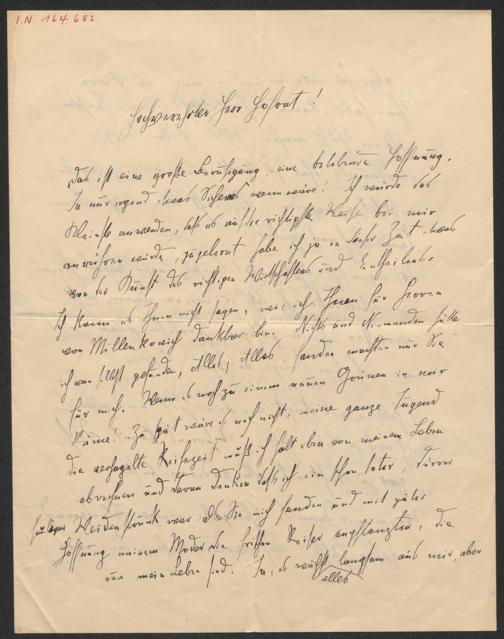 I.N. 164.683
Hochverehrter Herr Hofrat!
Das ist eine große Beruhigung, eine belebende Hoffnung.
Ja nur irgend etwas Sicheres wenn wäre! Ich würde das
Kleinste anwenden, daß es auf die richtigste Weise bei mir
würde, gelernt habe ich ja in dieser Zeit etwas
von der Kunst des richtigen Wirtschaftens und Eintheilens.
Ich kann es Ihnen nicht sagen, wie ich Ihnen für Herrn
von Millenkovich dankbar bin. Nichts und Niemanden hätte
ich von selbst gefunden, Alles, Alles fanden machten nur Sie
für mich. Wenn es noch zu einem neuen Grünen in mir
käme! Zu spät wäre es noch nicht, meine ganze Jugend
die verhagelte Reifezeit muß ich halt eben von meinem Leben
abrechnen und daran denken daß ich ein schon toter, dürrer
Weidenstrunk war als Sie mich fanden und mit guter
Hoffnung meinem Moder die frischen Reiser aufpflanzten, die
nun mein Leben sind. Ja, es wächst langsam aus mir, aber
alles